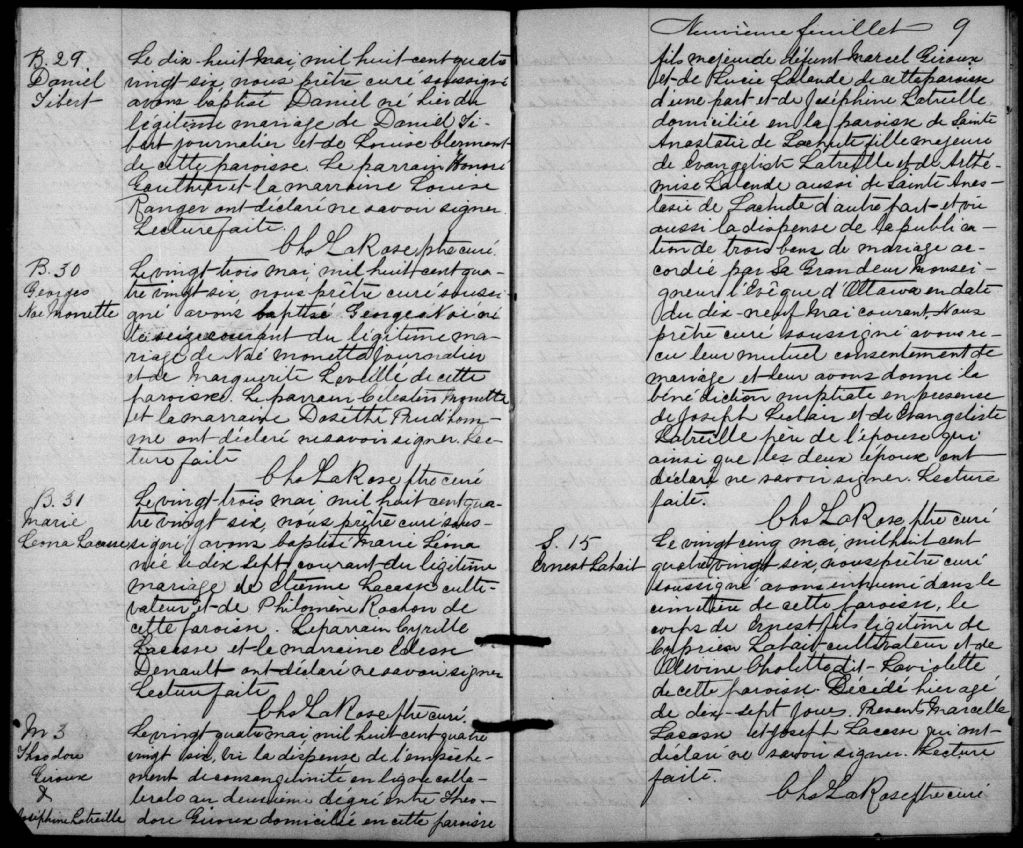 B. 29
Daniel
Sibert
Le dix-huit Mai, mil huit cent quatre
vingt-six, nous prêtre curé soussigné
avons baptisé Daniel né hier du
légitime mariage de Daniel Si-
bert journalier et de Louise Clermont
de cette paroisse. Le parrain Honoré
Gauthier et la marraine Louise
Ranger ont déclaré ne savoir signer.
Lecture faite.
Chs LaRose ptre curé
B. 30
Georges
Noé Monette
Le vingt-trois mai, mil huit cent qua-
tre vingt-six, nous prêtre curé soussi-
gné avons baptisé Georges Noé né
le seize courant du légitime ma-
riage de Noé Monette journalier
et de Marguerite Leveillé de cette
paroisse. Le parrain Celestin Monette
et la marraine Dosethé Prud'hom-
me ont déclaré ne savoir signer. Lec-
ture faite
Chs LaRose ptre curé
B. 31
Marie
Léona Lacasse
Le vingt-trois mai, mil huit cent qua-
tre vingt six, nous prêtre curé sous-
signé avons baptisé Marie Léona
née le dix sept courant du légitime
mariage de Etienne Lacasse culti-
vateur et de Philomène Rochon de
cette paroisse. Le parrain Cyrille
Lacasse et le marraine Edesse
Denault ont déclaré ne savoir signer
Lecture faite
Chs LaRose ptre curé.
M 3
Théodore
Giroux
&
Joséphine Latreille
Le vingt quatre mai, mil huit cent quatre
vingt six, vu la dispense de l'empêche-
ment de consanguinité en ligne colla-
terale au deuxième dégré entre Théo-
dore Giroux domicilié en cette paroisse
Neuvième feuillet 9
fils majeur de défunt Marcel Giroux
et de Lucie Lalande de cette paroisse
d'une part et de Joséphine Latreille
domiciliée en la paroisse de Sainte
Anastasie de Lachute fille majeure
de Evangéliste Latreille et de Arthé-
mise Lalande aussi de Sainte Anas-
tasie de Lachute d'autre part et vu
aussi la dispense de la publica-
tion de trois bans de mariage ac-
cordée par Sa Grandeur Monsei-
gneur l'Evêque d'Ottawa en date
du dix-neuf Mai courant. Nous
prêtre curé soussigné avons re-
çu leur mutuel consentement de
mariage et leur avons donné la
bénédiction nuptiale en présence
de Joseph Leclair et de Evangéliste
Latreille père de l'épouse qui
ainsi que les deux époux ont
déclaré ne savoir signer. Lecture
faite.
Chs LaRose, ptre curé
S. 15
Ernest Lahait
Le vingt cinq mai, mil huit cent
quatre vingt six, nous prêtre curé
soussigné avons inhumé dans le
cimetière de cette paroisse, le
corps de Ernest fils légitime de
Cyprien Lahait cultivateur et de
Olevine Cholette dit Laviolette
de cette paroisse. Décédé hier agé
de dix-sept jours. Présents Marcelle
Lacasse et Joseph Lacasse qui ont
déclaré ne savoir signer. Lecture
faite.
Chs LaRose ptre curé